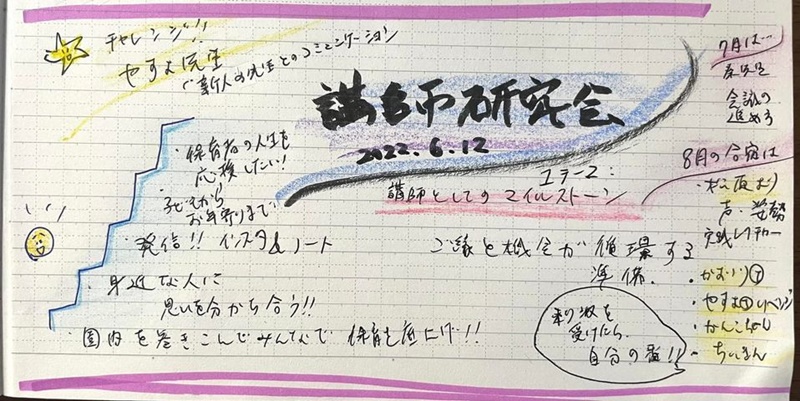 チャレンジ!!
やすよ先生
"新人の先生とのコミュニケーション
講師研究会
2022.6.12
テーマ:
講師としてのマイルストーン
・保育者の人生を
応援したい!
・子どもから
お年寄りまで
・発信!! インスタ&ノート
・身近な人に
思いを分かち合う!!
・園内を巻きこんでみんなで 保育を底上げ!!
ご縁と機会が循環する
準備.
受けたら、
自分の番!!
7月は…
会議の
進め方
8月の合宿は
声・姿勢
実践レクチャー
・かおり
・やすよ リベンジ
・かんこちゃん